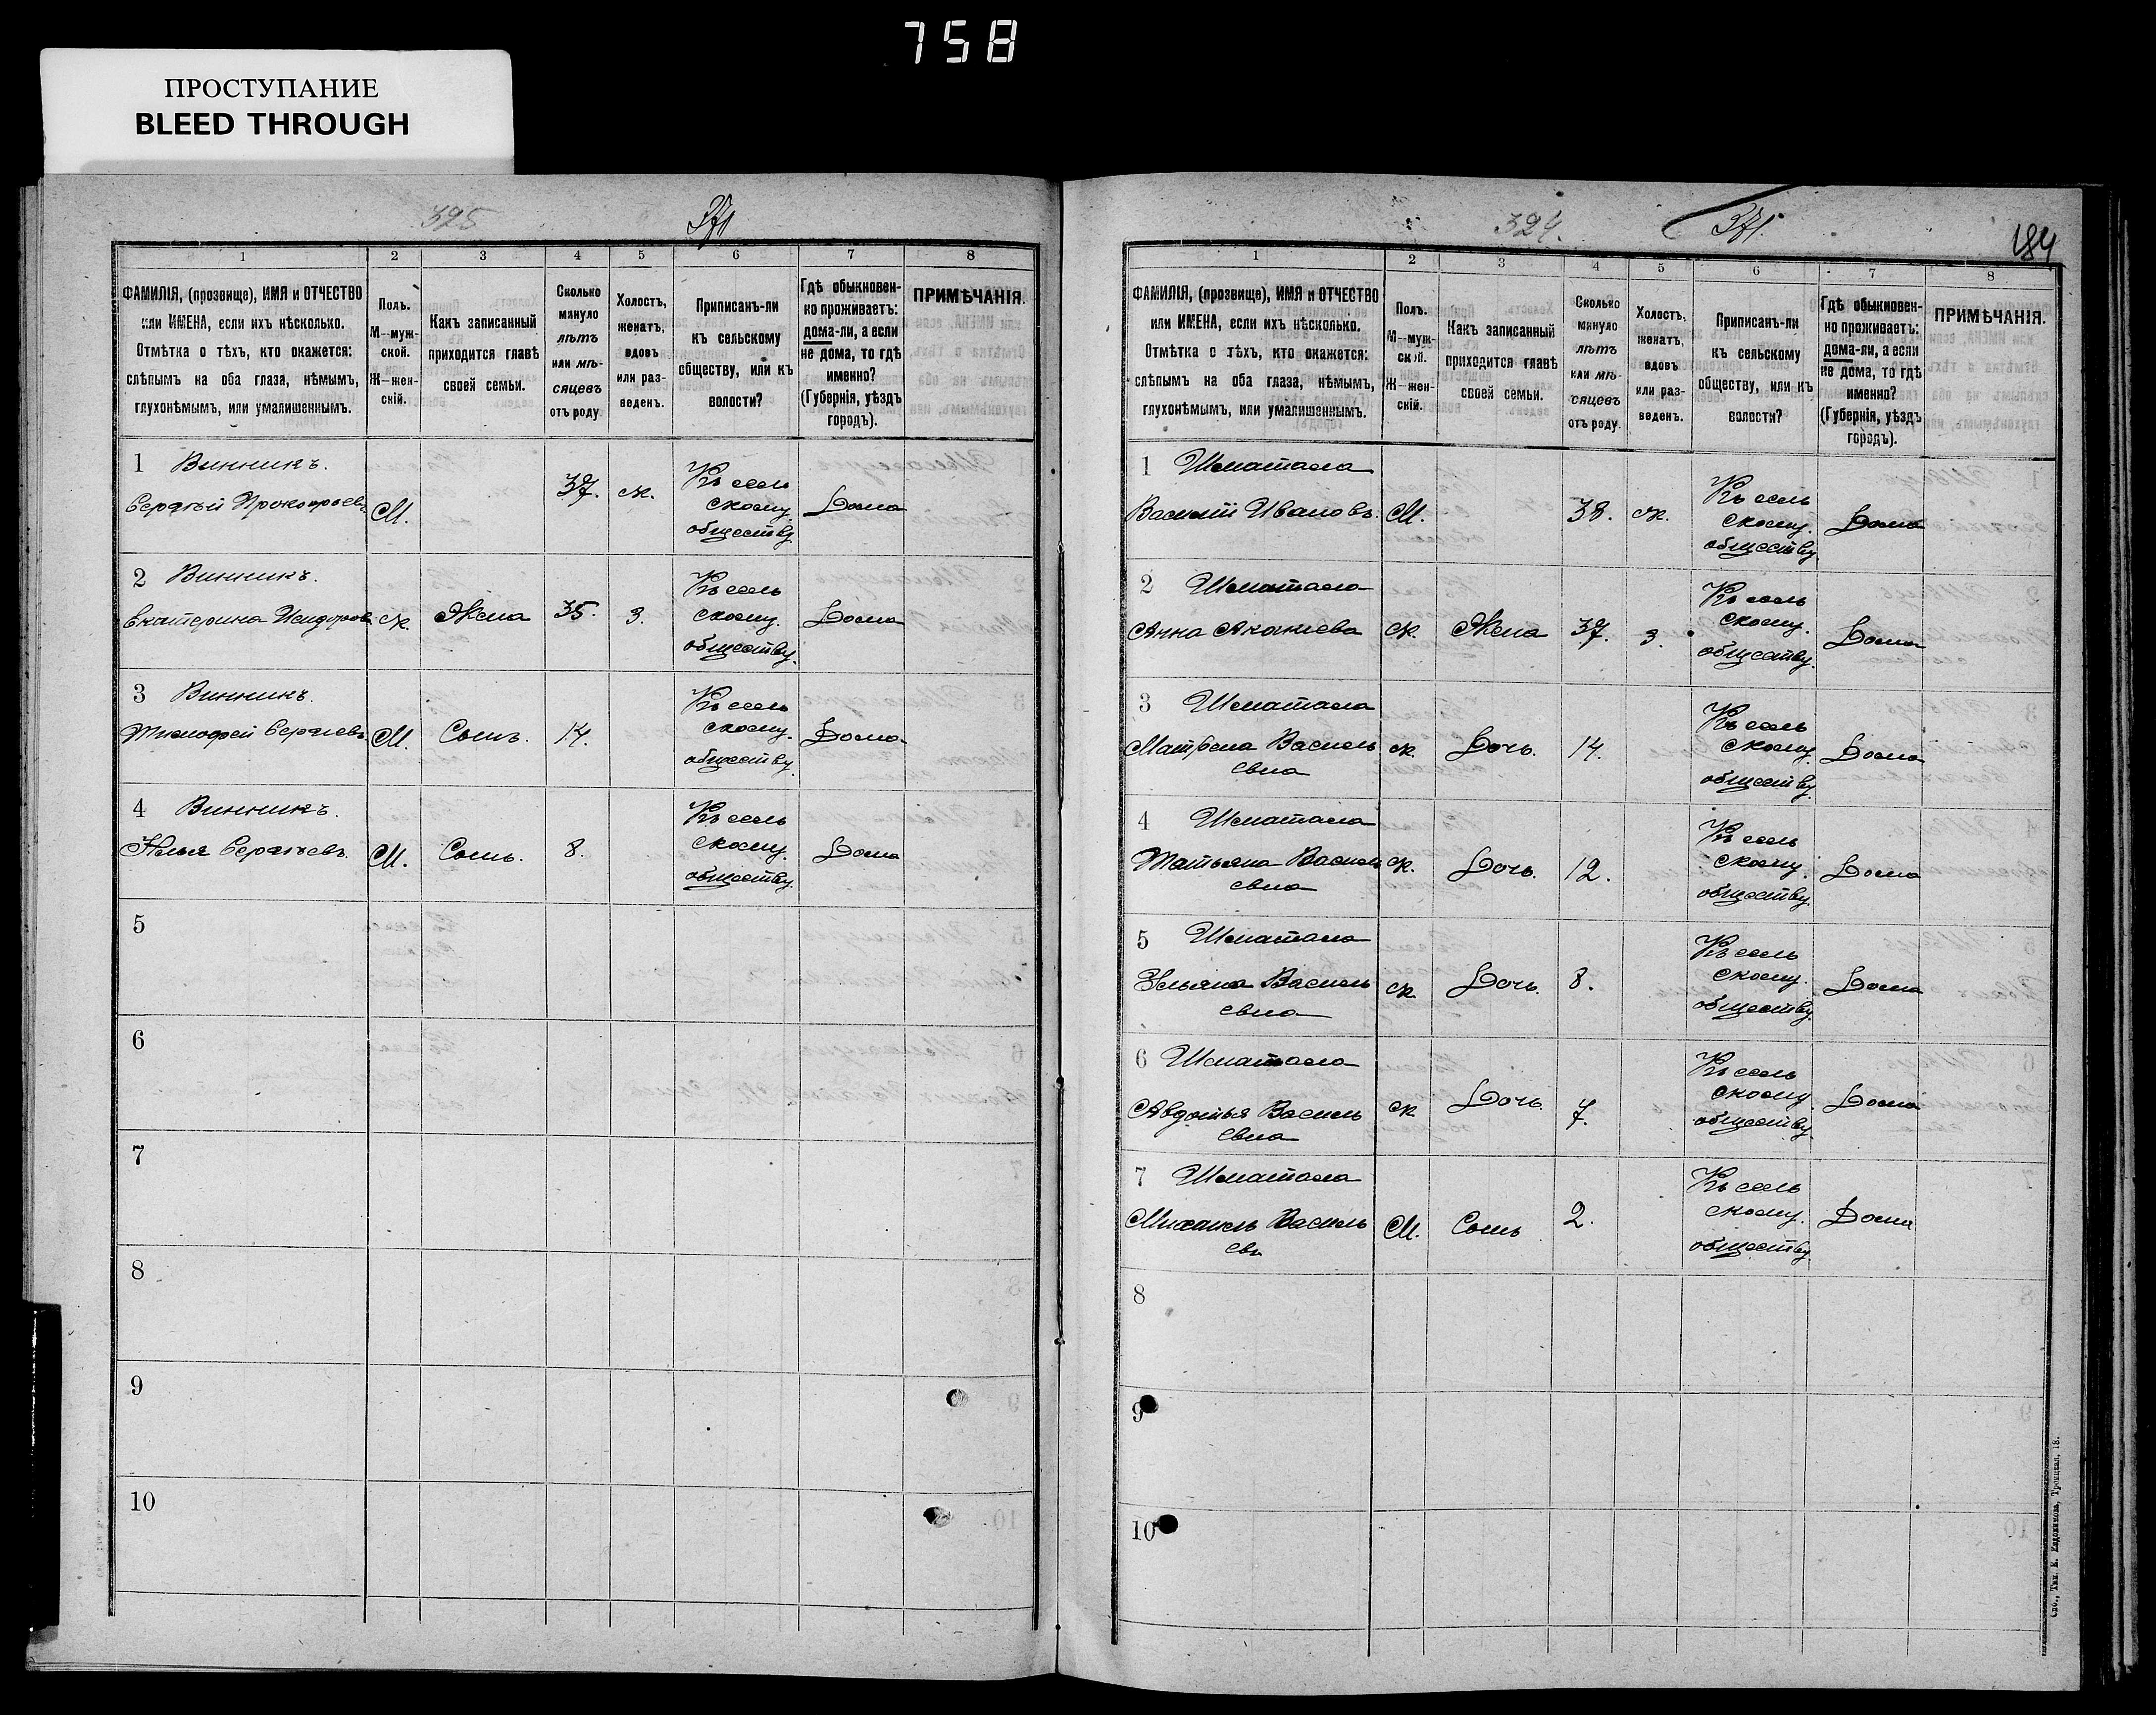 758
ПРОСТУПАНИЕ
BLEED THROUGH
325
371
1 2 3 4 5 6 7 8
ФАМИЛІЯ, (прозвище), ИМЯ и ОТЧЕСТВО
или ИМЕНА, если ихъ нѣсколько.
Отмѣтка о тѣхъ, кто окажется:
слѣпымъ на оба глаза, нѣмымъ,
глухонѣмымъ, или умалишеннымъ.
Полъ.
М—муж-
ской.
Ж—жен-
скій.
Какъ записанный
приходится главѣ
своей семьи.
Сколько
минуло
лѣтъ
или мѣ-
сяцевъ
отъ роду.
Холостъ,
женатъ,
вдовъ
или раз-
веденъ.
Приписанъ-ли
къ сельскому
обществу, или къ
волости?
Гдѣ обыкновен-
но проживаетъ:
дома-ли, а если
не дома, то гдѣ
именно?
(Губернія, уѣздъ
городъ).
ПРИМѢЧАНІЯ.
1 Винникъ.
Сергѣй Прокофьевъ М. 37. ж. Къ сель
скому.
обществу. Дома
2 Винникъ.
Екатерина Исидоров. ж. Жена 35. з. Къ сель
скому.
обществу. Дома
3 Винникъ.
Тимофей Сергѣевъ. М. Сынъ. 14. Къ сель
скому.
обществу. Дома
4 Винникъ.
Илья Сергѣевъ. М. Сынъ. 8. Къ сель
скому.
обществу. Дома
5
6
7
8
9
10
324.
371.
184
1 2 3 4 5 6 7 8
ФАМИЛІЯ, (прозвище), ИМЯ и ОТЧЕСТВО
или ИМЕНА, если ихъ нѣсколько.
Отмѣтка о тѣхъ, кто окажется:
слѣпымъ на оба глаза, нѣмымъ,
глухонѣмымъ, или умалишеннымъ.
Полъ.
М—муж-
ской.
Ж—жен-
скій.
Какъ записанный
приходится главѣ
своей семьи.
Сколько
минуло
лѣтъ
или мѣ-
сяцевъ
отъ роду.
Холостъ,
женатъ,
вдовъ
или раз-
веденъ.
Приписанъ-ли
къ сельскому
обществу, или къ
волости?
Гдѣ обыкновен-
но проживаетъ:
дома-ли, а если
не дома, то гдѣ
именно?
(Губернія, уѣздъ
городъ).
ПРИМѢЧАНІЯ.
1 Шматала
Василій Ивановъ. М. 38. ж. Къ сель
скому.
обществу Дома
2 Шматала
Анна Акакиева ж. Жена 37. з. Къ сель
скому.
обществу. Дома
3 Шматала
Матрена Василь
евна ж. Дочь. 14. Къ сель
скому
обществу. Дома
4 Шматала
Татьяна Василь
евна ж. Дочь. 12. Къ сель
скому.
обществу. Дома
5 Шматала
Ульяна Василь
евна ж Дочь. 8. Къ сель
скому.
обществу. Дома
6 Шматала
Авдотья Василь
евна ж Дочь. 7. Къ сель
скому
обществу. Дома
7 Шматала
Михаилъ Василь
евъ М. Сынъ 2. Къ сель
скому.
обществу. Дома
8
9
10
Спб., Тип. Е. Евдокимова, Троицкая, 18.